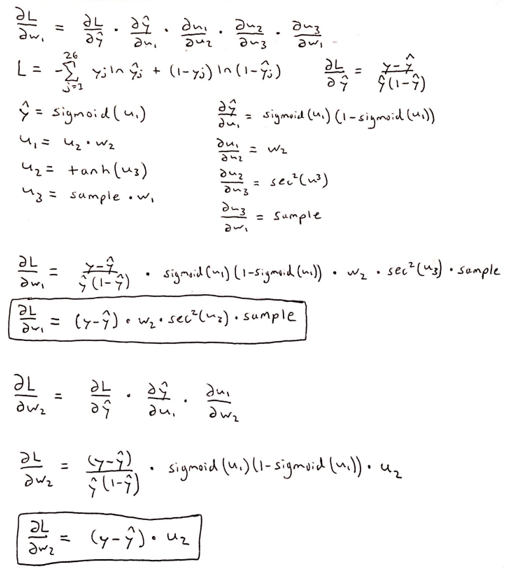 ∂L/∂w₁ = ∂L/∂ŷ · ∂ŷ/∂u₁ · ∂u₁/∂u₂ · ∂u₂/∂u₃ · ∂u₃/∂w₁
L = -∑_{j=1}^{26} yⱼ ln ŷⱼ + (1-yⱼ) ln(1-ŷⱼ) ∂L/∂ŷ = (y-ŷ)/(ŷ(1-ŷ))
ŷ = sigmoid(u₁) ∂ŷ/∂u₁ = sigmoid(u₁)(1-sigmoid(u₁))
u₁ = u₂ · w₂ ∂u₁/∂u₂ = w₂
u₂ = tanh(u₃) ∂u₂/∂u₃ = sec²(u³)
u₃ = sample · w₁ ∂u₃/∂w₁ = sample
∂L/∂w₁ = (y-ŷ)/(ŷ(1-ŷ)) · sigmoid(u₁)(1-sigmoid(u₁)) · w₂ · sec²(u₃) · sample
∂L/∂w₁ = (y-ŷ) · w₂ · sec²(u₂) · sample
∂L/∂w₂ = ∂L/∂ŷ · ∂ŷ/∂u₁ · ∂u₁/∂w₂
∂L/∂w₂ = (y-ŷ)/(ŷ(1-ŷ)) · sigmoid(u₁)(1-sigmoid(u₁)) · u₂
∂L/∂w₂ = (y-ŷ) · u₂